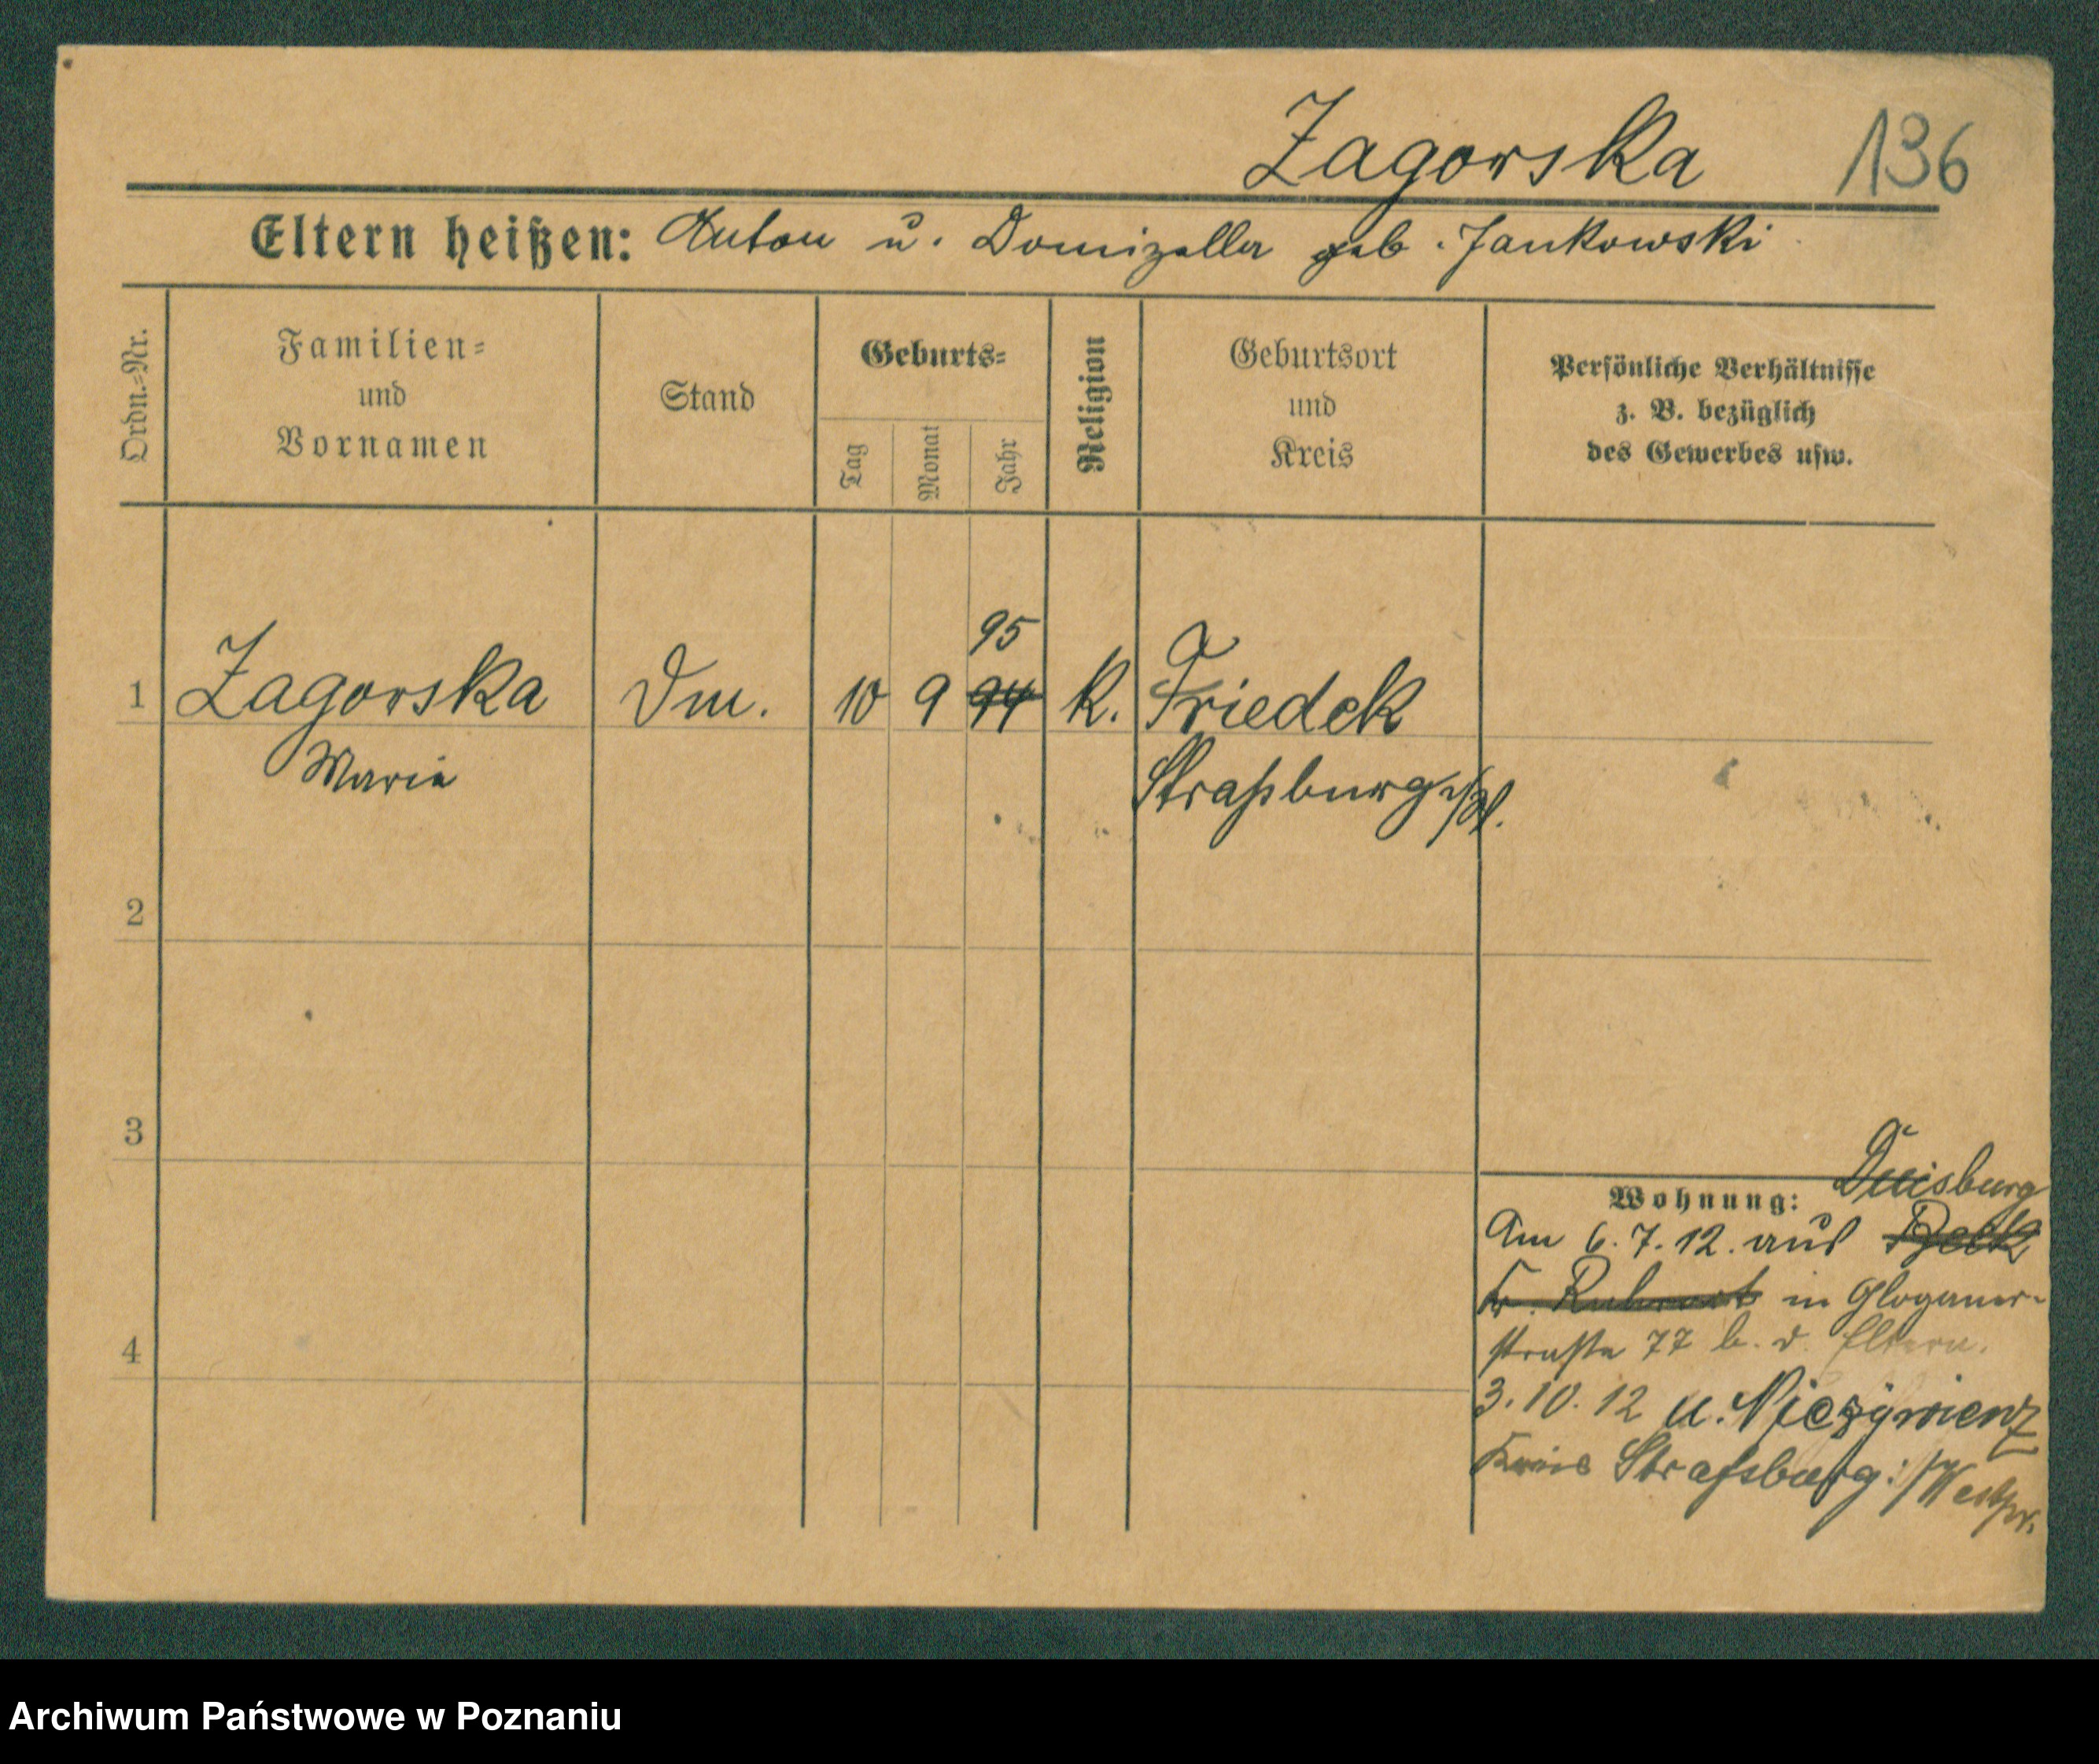 Zagorska 136
Eltern heißen: Anton u. Domizella geb. Jankowski
Ordn.=Nr.
Familien=
und
Vornamen
Stand
Geburts=
Tag
Monat
Jahr
Religion
Geburtsort
und
Kreis
Persönliche Verhältnisse
z. B. bezüglich
des Gewerbes usw.
95
1 Zagorska Dm. 10 9 94 k. Friedek
Maria Straßburg
2
3
4
Wohnung: Duisburg
Am 6.7.12. aus Beek
Kr. Ruhrort in Glogauer-
straße 77 b. d. Eltern.
3.10.12 u.
Kreis Strassburg i/Westpr.
Archiwum Państwowe w Poznaniu